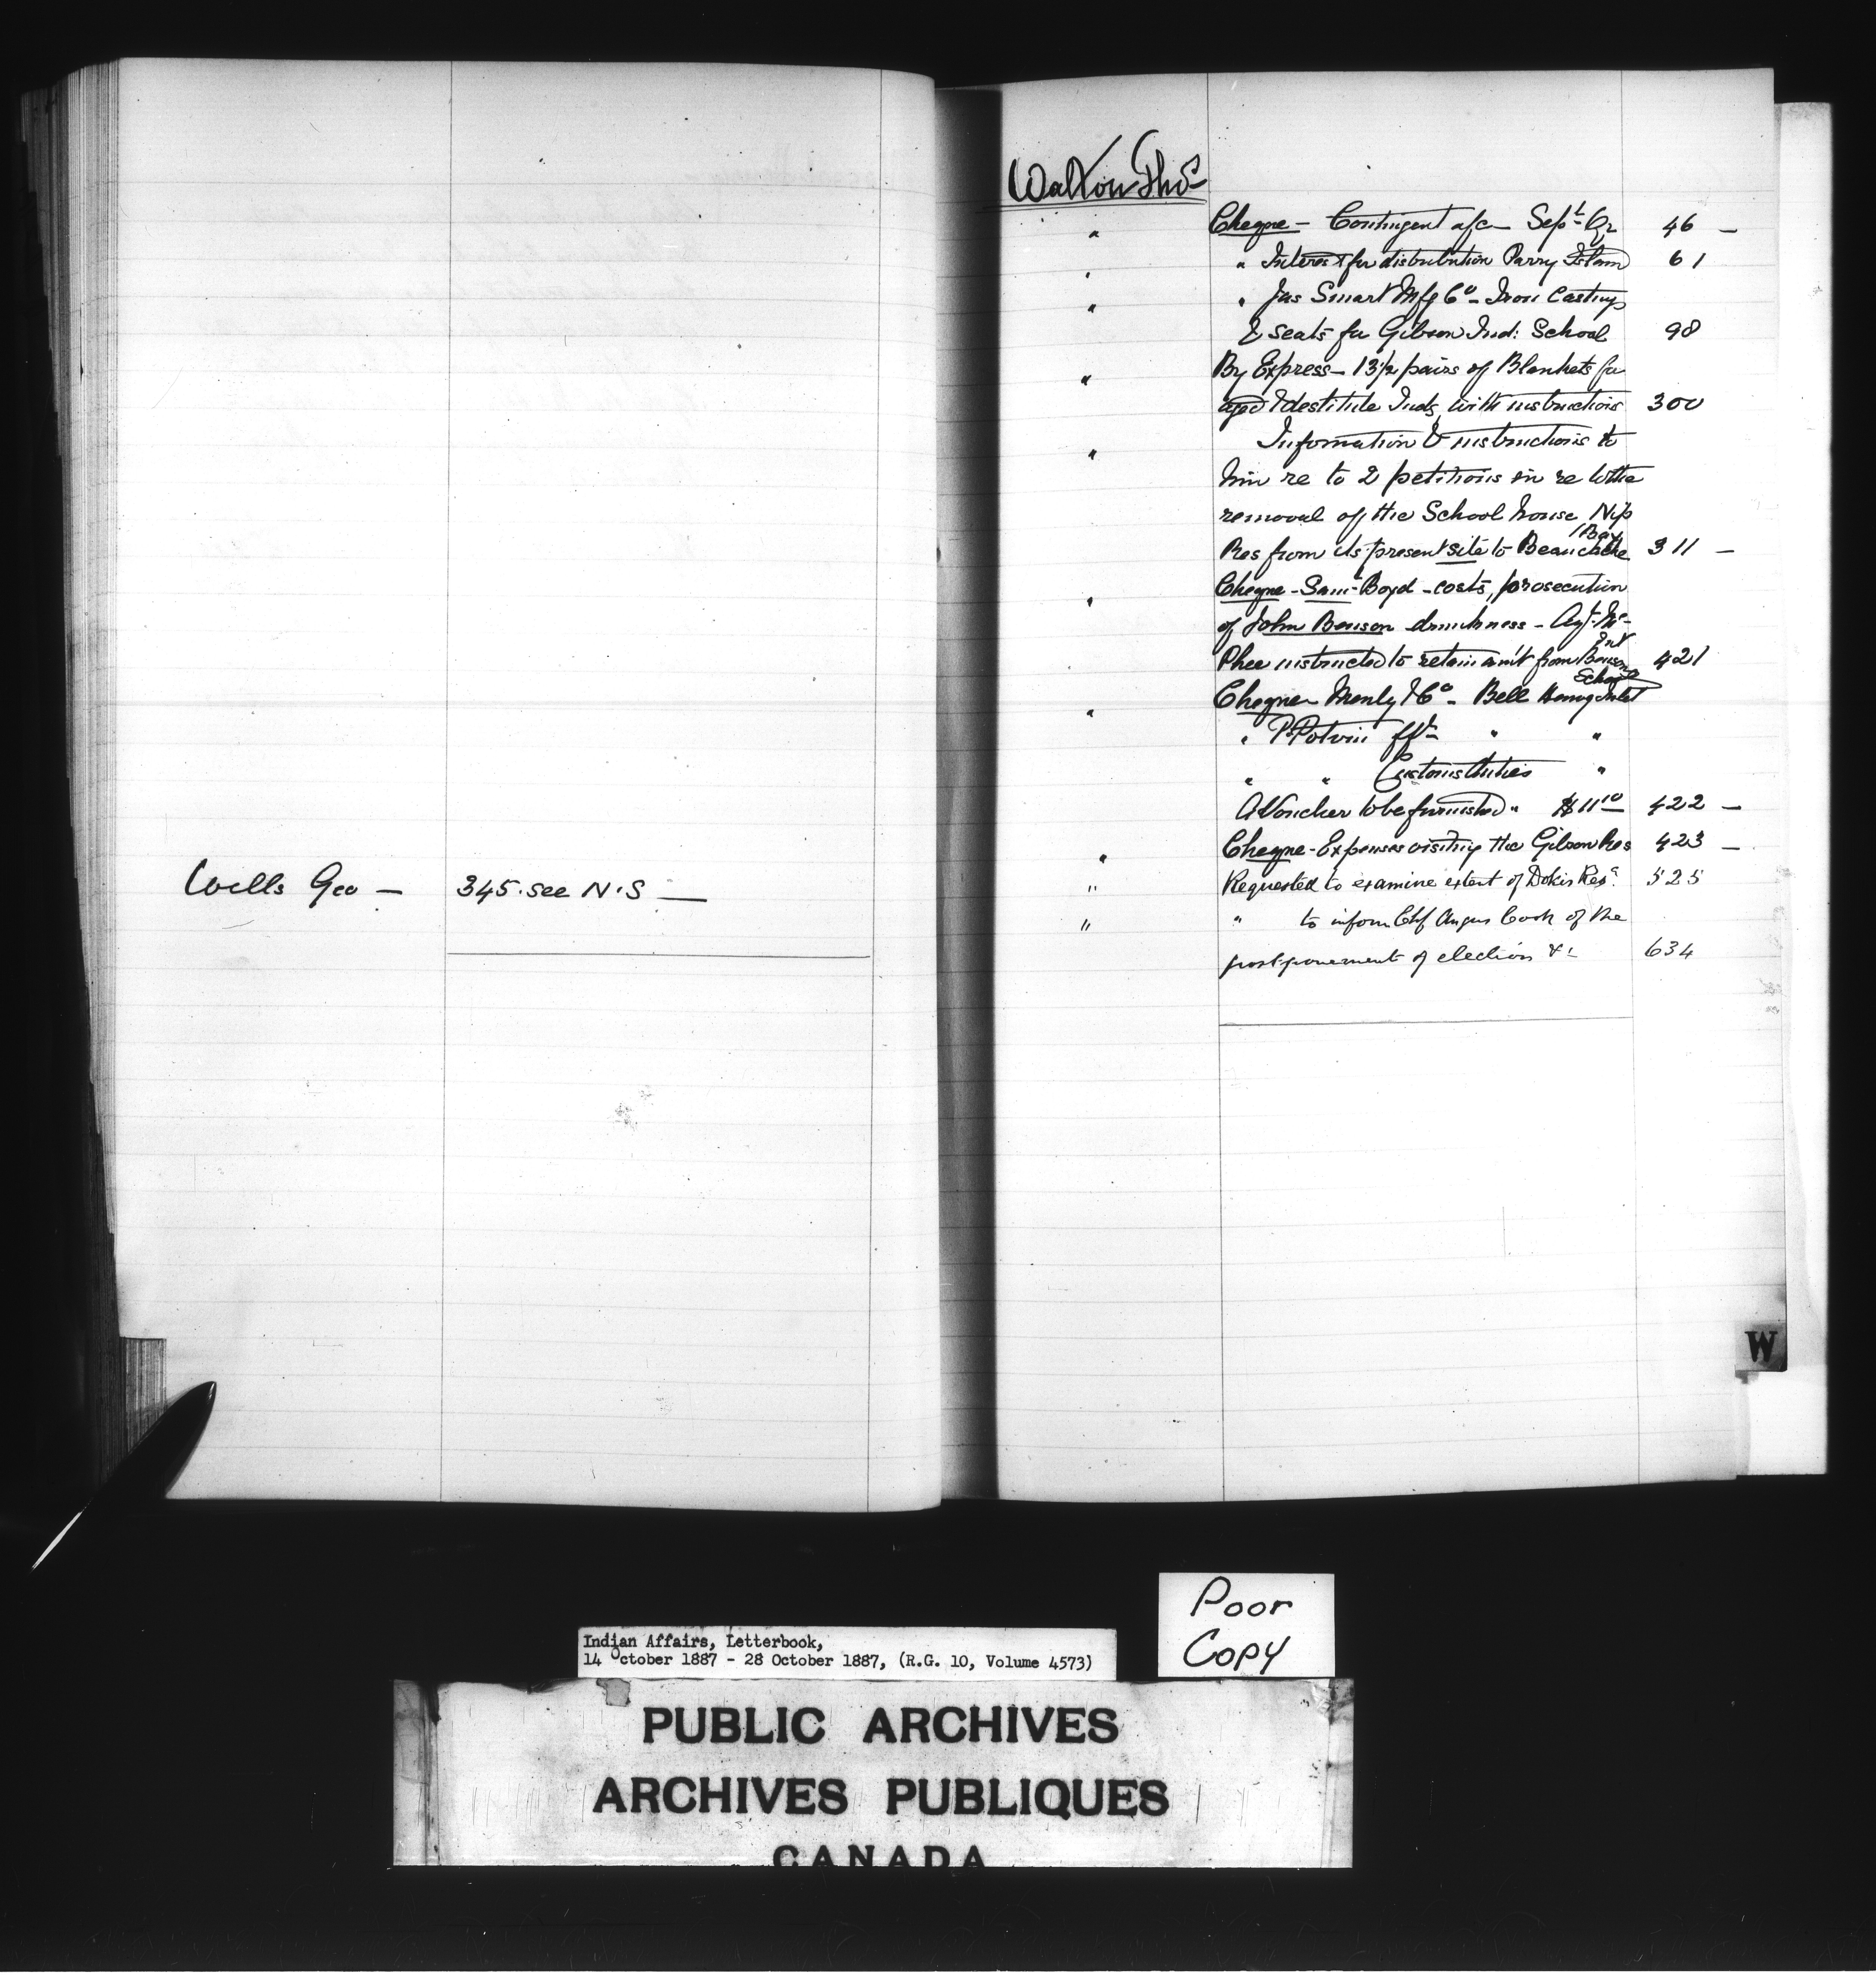 Wells Geo — 345. see N.S —
Walton Thos
" Cheque — Contingent a/c — Sept Qr 46 —
" " Interest for distribution Parry Island 61
" " Jas Smart Mfg Co — Iron Castings
& seats for Gibson Ind: School 98
" By Express — 13½ pairs of Blankets for
aged & destitute Inds, with instructions 300
" Information & instructions to
him re to 2 petitions in re to the
removal of the School house Nip
Res from its present site to Beaucache Bay 311 —
" Cheque — Saml Boyd — costs, prosecution
of John Benson drunkness — Agt. Mc-
Phee instructed to retain am't from Benson Int 421
" Cheque Menly & Co — Bell Henvy Inlet School
" P Potvin " "
" " Customs duties "
A Voucher to be furnished " $11 10 422 —
" Cheque — Expenses visiting the Gibson Res 423 —
" Requested to examine extent of Dokis Res. 525
" " to inform Chf Angus Cook of the
postponement of election &c 634
W
Poor
Copy
Indian Affairs, Letterbook,
14 October 1887 - 28 October 1887, (R.G. 10, Volume 4573)
PUBLIC ARCHIVES
ARCHIVES PUBLIQUES
CANADA